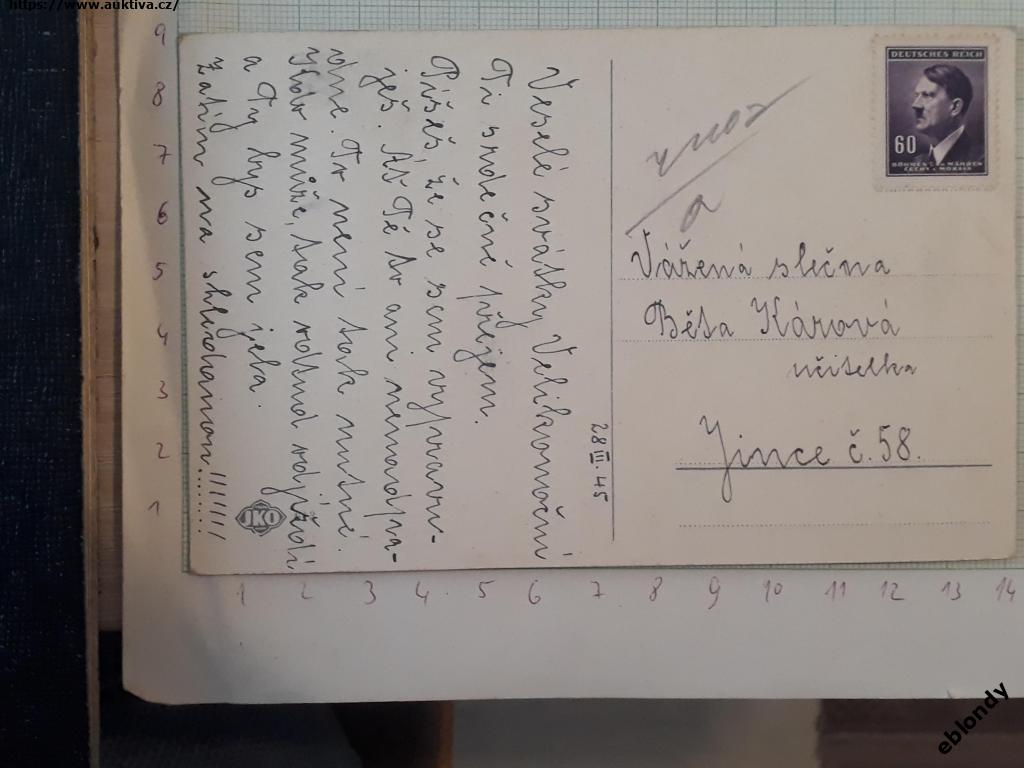 https://www.auktiva.cz/
Veselé svátky Velikonoční
Ti srdečně přejem.
Píšeš, že se sem vypravu-
ješ. Ať Tě to ani nenadpa-
dne. To není tak nutné.
může, tak odjíždí
a Ty bys sem jela.
Zatím na shledanou
28 III. 45
JKO
DEUTSCHES REICH
60
BÖHMEN U. MÄHREN
ČECHY A MORAVA
Vážená slečna
Běta Kárová
učitelka
Jince č. 58.
9
8
7
6
5
4
3
2
1
1 2 3 4 5 6 7 8 9 10 11 12 13 14
eblondy